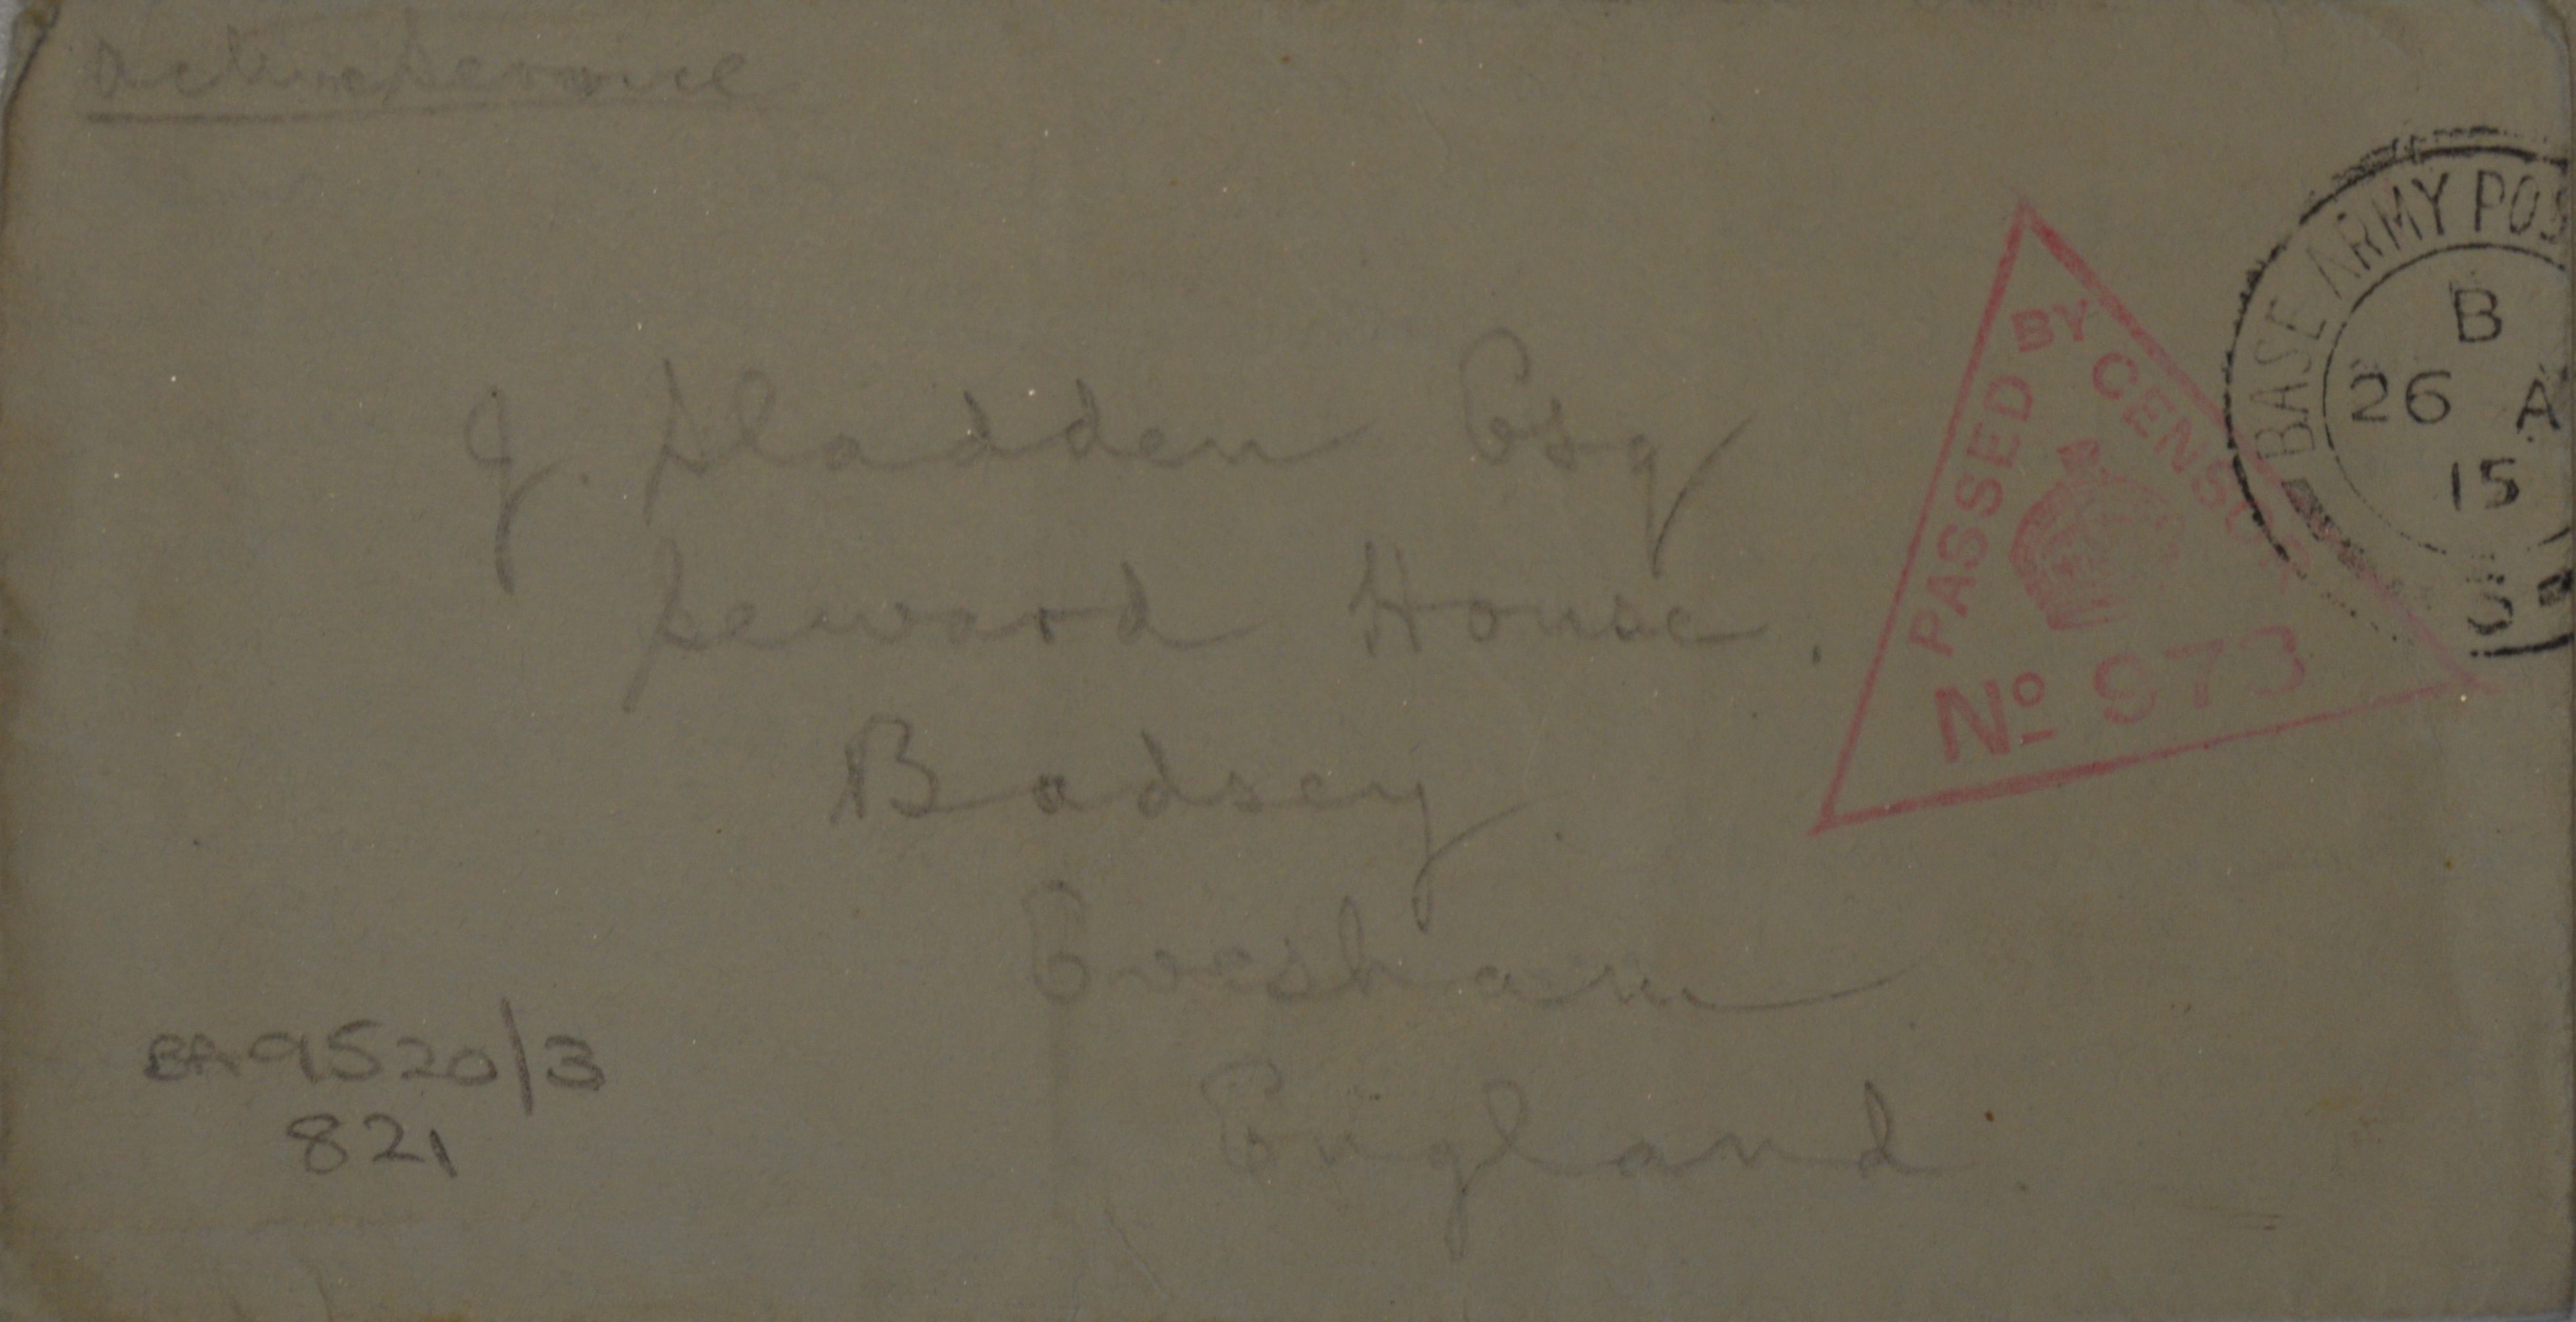 Active Service
J. Sladden Esq
Seward House.
Badsey
Evesham
England
PASSED BY CENSOR
No 973
BASE ARMY POS
B
26 A
15
BA9520/3
821